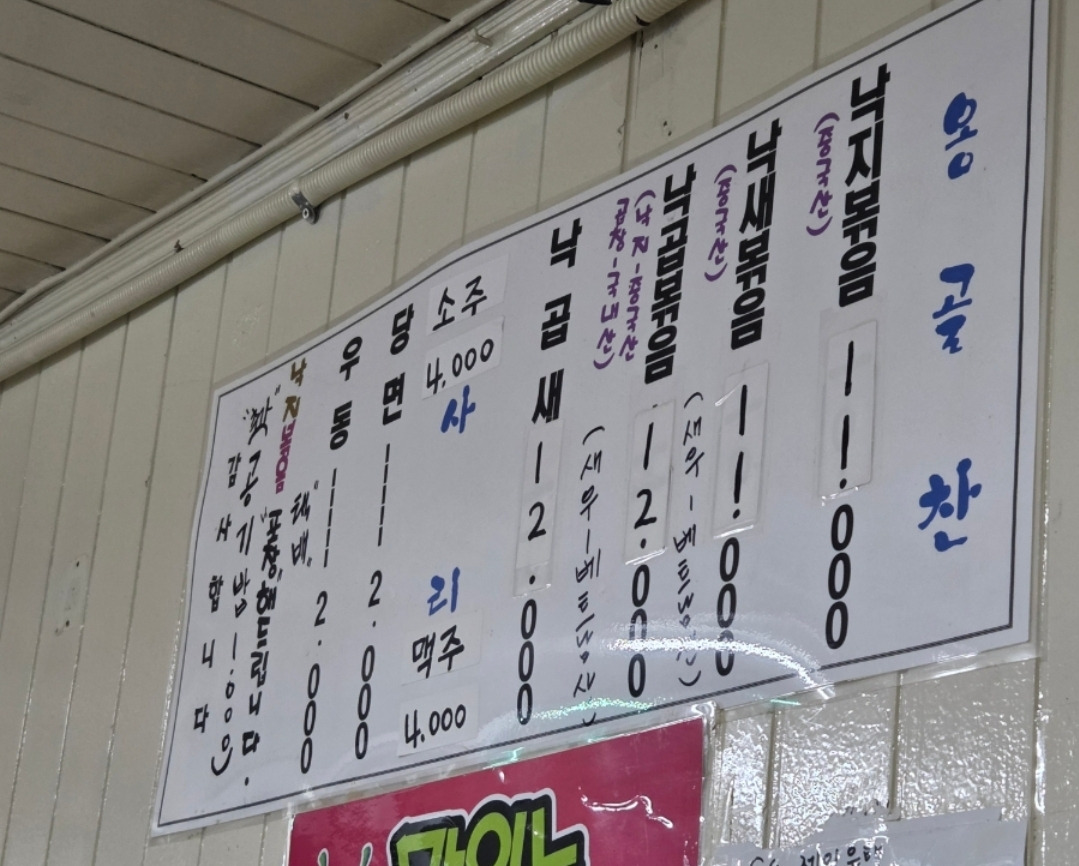 옹 골 찬
낙지볶음 11.000
(중국산)
낙새볶음 11.000
(중국산) (새우-베트남산)
낙곱볶음 12.000
(낙지-중국산
곱창-국내산) (새우-베트남산)
낙 곱 새 12.000
사 리
소주 4.000
맥주 4.000
당 면 ----- 2.000
우 동 ----- 2.000
"택배"
낙지볶음 "포장"해드립니다.
공기밥-1.000)
감 사 합 니 다